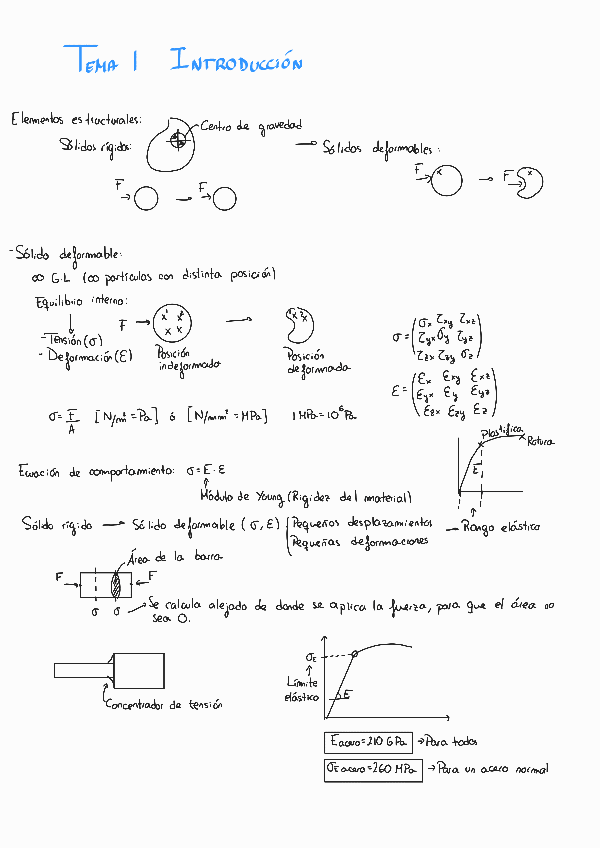 TEMA 1 INTRODUCCIÓN
Elementos estructurales:
Centro de gravedad
Sólidos rígidos:
→ Sólidos deformables:
F → F
F → F
- Sólido deformable:
∞ G.L (∞ partículas con distinta posición)
Equilibrio interno:
F → →
- Tensión (σ)
- Deformación (ε)
Posición indeformada
Posición deformada
σ = (σx τxy τxz
τyx σy τyz
τzx τzy σz)
ε = (εx εxy εxz
εyx εy εyz
εzx εzy εz)
σ = F/A [N/m² = Pa] ó [N/mm² = MPa] 1 MPa = 10⁶ Pa
Plastifica
Rotura
E
Ecuación de comportamiento: σ = E · ε
Módulo de Young (Rigidez del material)
Sólido rígido → Sólido deformable (σ, ε) Pequeños desplazamientos
Pequeñas deformaciones
→ Rango elástico
Área de la barra
F F
σ σ
Se calcula alejado de donde se aplica la fuerza, para que el área no
sea 0.
Concentrador de tensión
σE
Límite
elástico
E
E acero = 210 GPa → Para todos
σE acero = 260 MPa → Para un acero normal